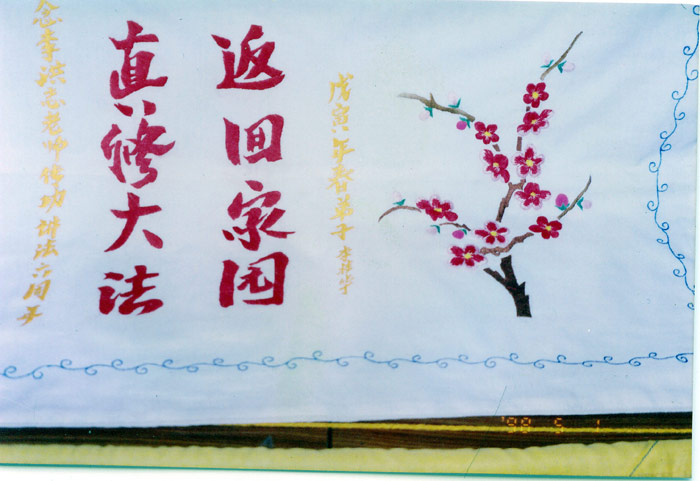 念李洪志老师传功讲法六周年
真修大法
返回家园
戊寅年春弟子
'98 5 1